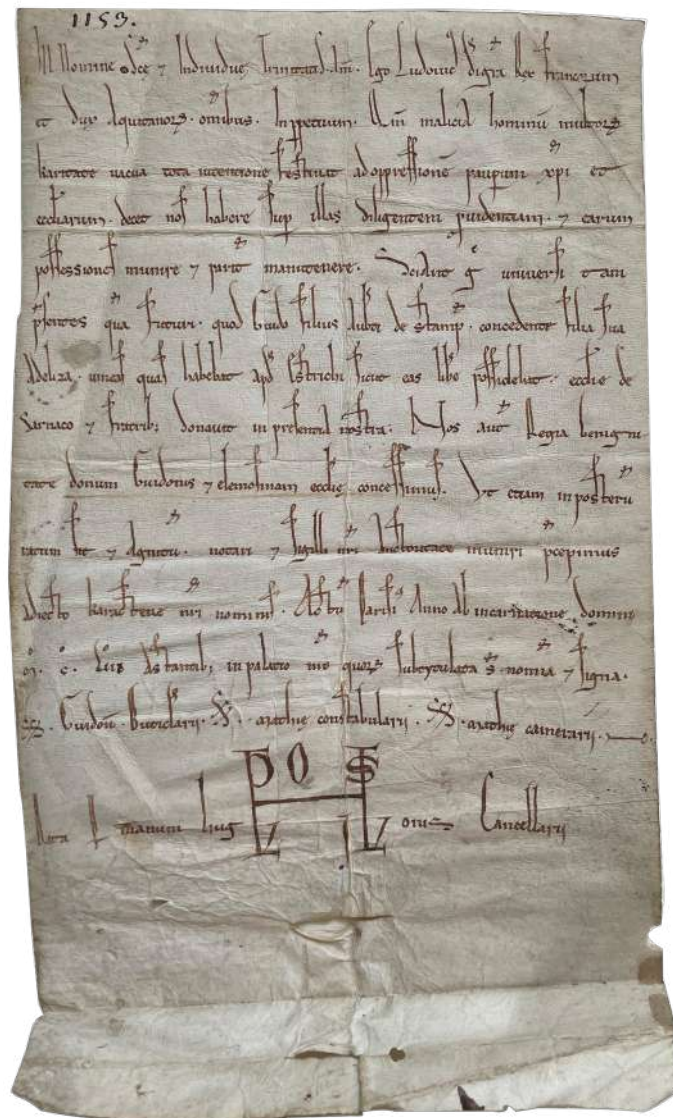 1153.
In Nomine Sce ⁊ Individue Trinitatis. Am. Ego Ludovic' di gra Rex francorum
et dux Aquitanorꝝ. omnibus. In ppetuum. Qm malicia hominū multorꝝ
karitate vacua tota intencione festinat ad oppressionē pauperum xpi et
eccliarum. decet nos habere sup illas diligentem pvidentiam. ⁊ earum
possessiones munire ⁊ parit manutenere. Sciant g universi tam
psentes qua futuri. quod Guido filius de stamp. concedente filia sua
Adeliza. vineas quas habebat apd Estrichi sicut eas libe possidebat. ecclie de
Sarnaco ⁊ fratrib; donavit in presentia nostra. Nos aut Regia benigni
tate donum Guidonis ⁊ elemosinam ecclię concessimus. Ut etiam in posteru
ratum sit ⁊ notari ⁊ sigilli nri Auctoritate muniri pcepimus
Adiecto karactere nri nominis. Actu Parisi Anno Ab incarnatione domini
M. C. Astantib; in palatio nro quorꝝ subtitulata s nomina ⁊ signa.
S. Guidon. Buticlarii. S. mathię constabularii. S. mathię camerarii.
Data p manum hug onis Cancellarii